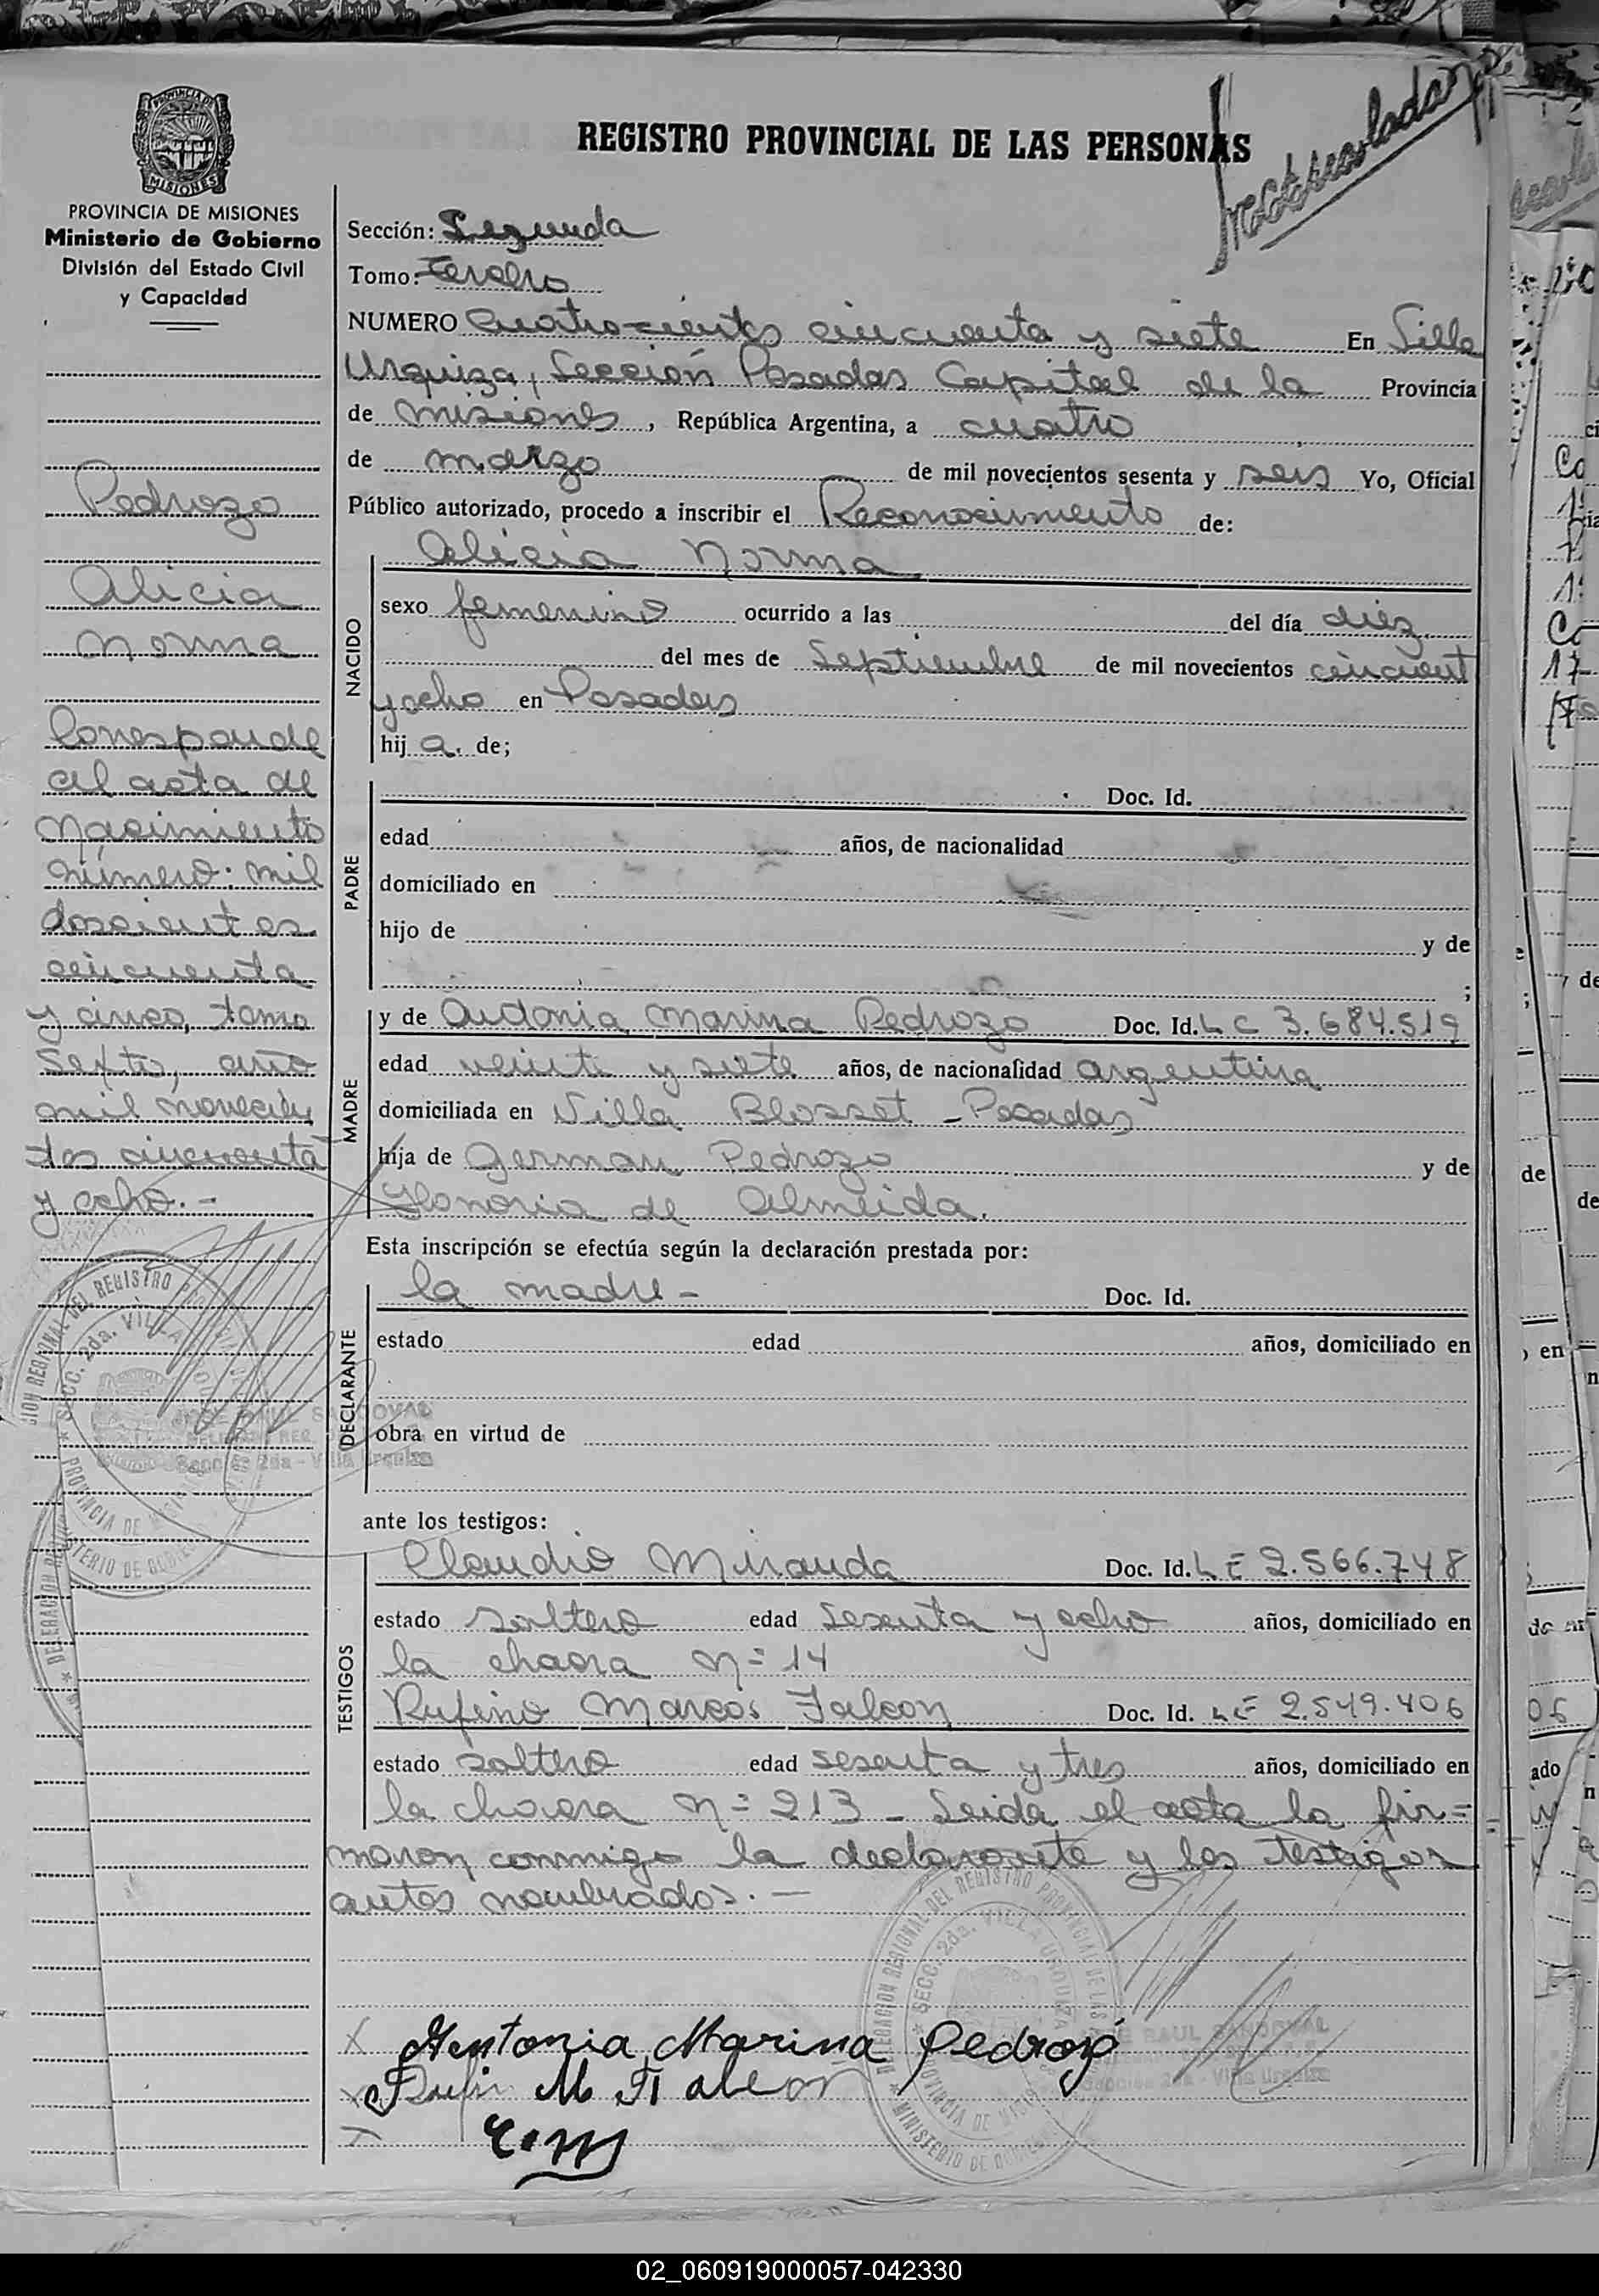 REGISTRO PROVINCIAL DE LAS PERSONAS
MISIONES
PROVINCIA DE MISIONES
Ministerio de Gobierno
División del Estado Civil
y Capacidad
Pedrozo
Alicia
Norma
Corresponde
al acta de
Nacimiento
número: mil
doscientos
cincuenta
y cinco, tomo
Sexto, año
mil novecien
tos cincuenta
y ocho.-
Sección: Segunda
Tomo: Tercero
NUMERO Cuatrocientos cincuenta y siete En Villa
Urquiza, Sección Posadas Capital de la Provincia
de Misiones, República Argentina, a cuatro
de marzo de mil novecientos sesenta y seis Yo, Oficial
Público autorizado, procedo a inscribir el Reconocimiento de:
Alicia Norma
NACIDO
sexo femenino ocurrido a las del día diez
del mes de Septiembre de mil novecientos cincuent
y ocho en Posadas
hij a. de;
PADRE
Doc. Id.
edad años, de nacionalidad
domiciliado en
hijo de y de
;
MADRE
y de Antonia Marina Pedrozo Doc. Id. L C 3.684.519
edad veinte y siete años, de nacionalidad argentina
domiciliada en Villa Blosset - Posadas
hija de German Pedrozo y de
Honoria de Almeida.
Esta inscripción se efectúa según la declaración prestada por:
DECLARANTE
la madre - Doc. Id.
estado edad años, domiciliado en
obra en virtud de
ante los testigos:
TESTIGOS
Claudio Miranda Doc. Id. L E 2.566.748
estado soltero edad sesenta y ocho años, domiciliado en
la chacra n= 14
Rufino Marcos Falcon Doc. Id. L E 2.549.406
estado soltero edad sesenta y tres años, domiciliado en
la chacra n= 213 - Leida el acta la fir=
maron conmigo la declarante y los testigos
antes nombrados. -
DELEGACION REGIONAL DEL REGISTRO PROVINCIAL DE LAS
SECC. 2da. VILLA URQUIZA
PROVINCIA DE MISIONES
MINISTERIO DE GOBIERNO
RAUL SANDOVAL
Sección 2da - Villa Urquiza
X Antonia Marina Pedrozo
X Rufin M Falcon
X C.M
02_060919000057-042330